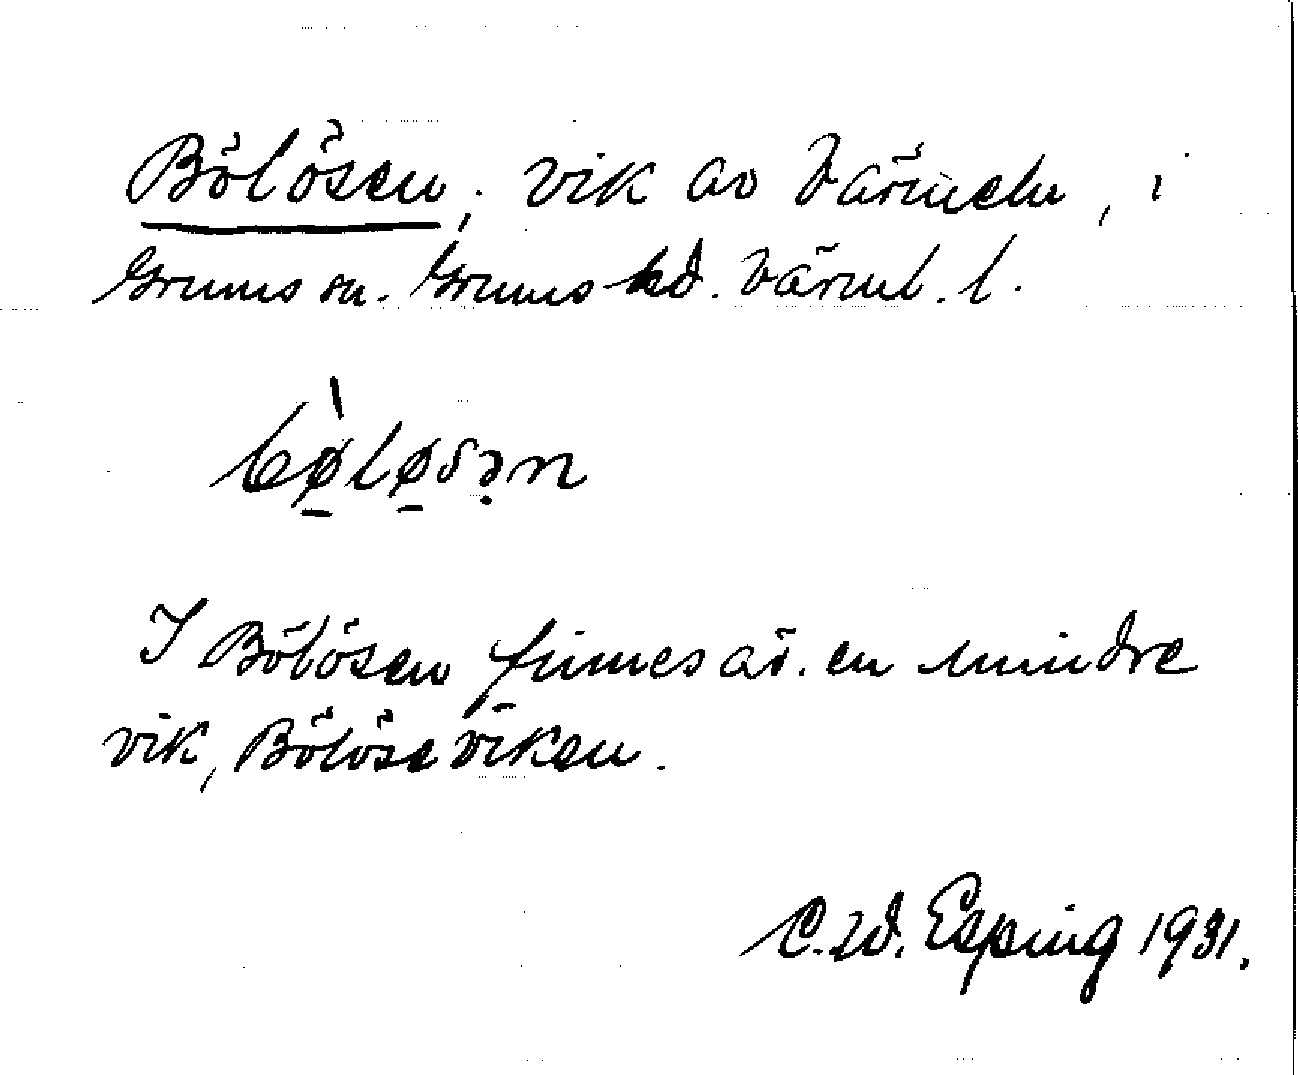 Bölösen, vik av Vänern, i
Grums sn. Grums hd. Värml. l.
bø̱̀lø̱sə̣n
I Bölösen finnes äv. en mindre
vik, Bölöseviken.
C. W. Esping 1931.